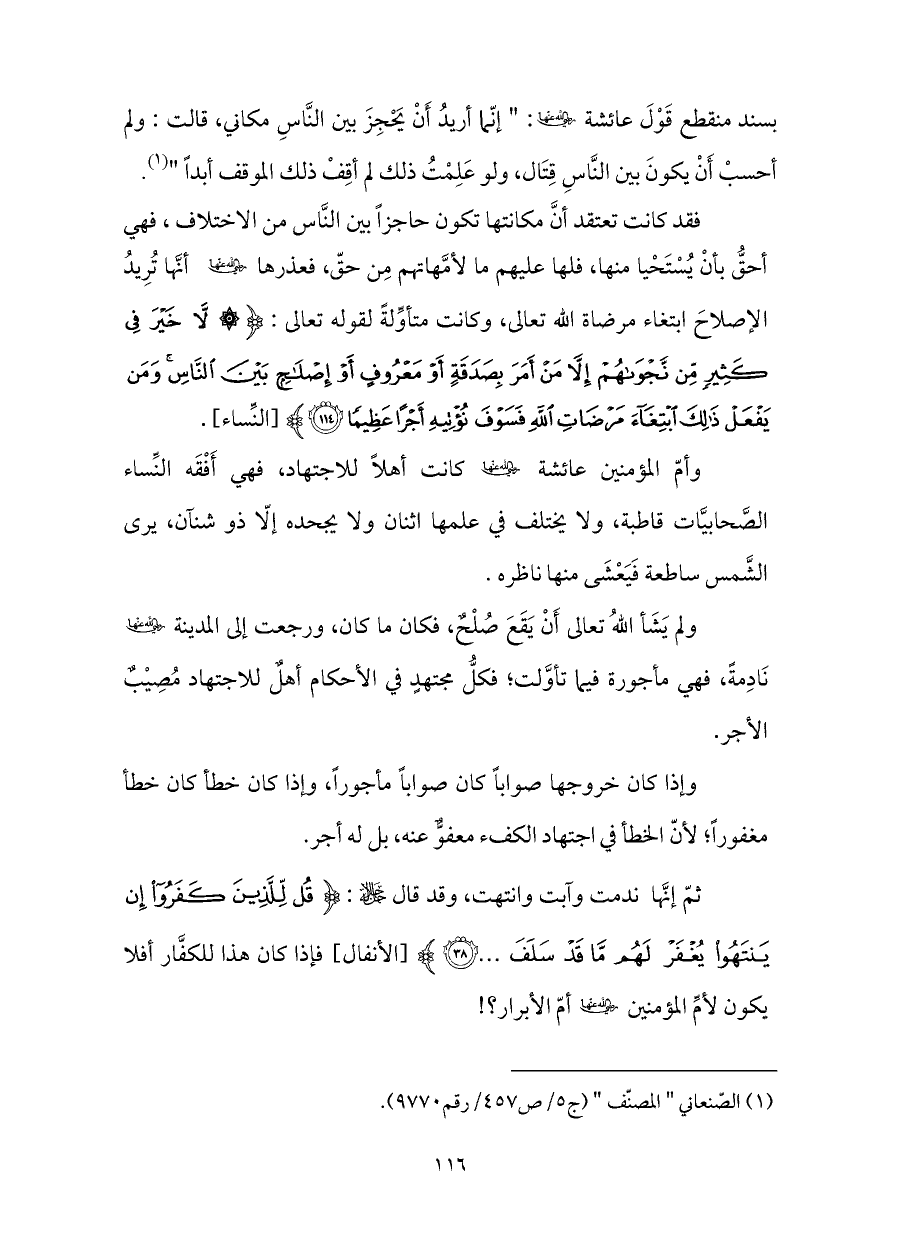 بسند منقطع قَوْلَ عائشة رضي الله عنها : " إنّما أريدُ أَنْ يَحْجِزَ بين النَّاسِ مكاني، قالت : ولم
أحسبْ أَنْ يكونَ بين النَّاسِ قِتَال، ولو عَلِمْتُ ذلك لم أقِفْ ذلك الموقف أبداً "(١).
فقد كانت تعتقد أنَّ مكانتها تكون حاجزاً بين النَّاس من الاختلاف ، فهي
أحقُّ بأنْ يُسْتَحْيا منها، فلها عليهم ما لأمَّهاتهم مِن حقّ، فعذرها رضي الله عنها أنَّها تُرِيدُ
الإصلاحَ ابتغاء مرضاة الله تعالى، وكانت متأوِّلةً لقوله تعالى : ﴿ ۞ لَّا خَيْرَ فِى
كَثِيرٍ مِّن نَّجْوَىٰهُمْ إِلَّا مَنْ أَمَرَ بِصَدَقَةٍ أَوْ مَعْرُوفٍ أَوْ إِصْلَٰحٍ بَيْنَ ٱلنَّاسِ ۚ وَمَن
يَفْعَلْ ذَٰلِكَ ٱبْتِغَآءَ مَرْضَاتِ ٱللَّهِ فَسَوْفَ نُؤْتِيهِ أَجْرًا عَظِيمًا ١١٤ ﴾ [النِّساء] .
وأمّ المؤمنين عائشة رضي الله عنها كانت أهلاً للاجتهاد، فهي أَفْقَه النِّساء
الصَّحابيَّات قاطبة، ولا يختلف في علمها اثنان ولا يجحده إلّا ذو شنآن، يرى
الشَّمس ساطعة فَيَعْشَى منها ناظره .
ولم يَشَأ اللهُ تعالى أَنْ يَقَعَ صُلْحٌ، فكان ما كان، ورجعت إلى المدينة رضي الله عنها
نَادِمةً، فهي مأجورة فيما تأوَّلت؛ فكلُّ مجتهدٍ في الأحكام أهلٌ للاجتهاد مُصِيْبٌ
الأجر.
وإذا كان خروجها صواباً كان صواباً مأجوراً، وإذا كان خطأ كان خطأ
مغفوراً؛ لأنّ الخطأ في اجتهاد الكفء معفوٌّ عنه، بل له أجر.
ثمّ إنَّها ندمت وآبت وانتهت، وقد قال جل جلاله : ﴿ قُل لِّلَّذِينَ كَفَرُوٓا۟ إِن
يَنتَهُوا۟ يُغْفَرْ لَهُم مَّا قَدْ سَلَفَ ... ٣٨ ﴾ [الأنفال] فإذا كان هذا للكفَّار أفلا
يكون لأمِّ المؤمنين رضي الله عنها أمّ الأبرار؟!
(١) الصّنعاني " المصنّف " (ج٥/ ص٤٥٧/ رقم٩٧٧٠).
١١٦